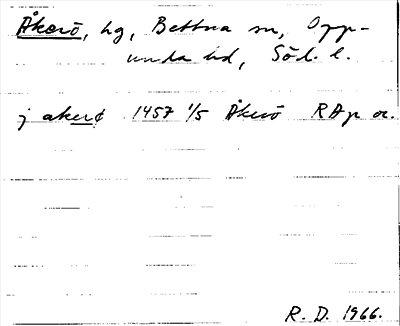 Åkerö, hg, Bettna sn, Opp-
unda hd, Söd. l.
j akerø 1457 1/5 Åkerö RAp or.
R. D. 1966.